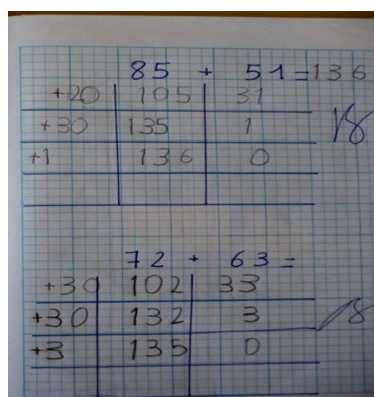 85 + 51 = 136
+20 105 31
+30 135 1
+1 136 0
72 + 63 =
+30 102 33
+30 132 3
+3 135 0